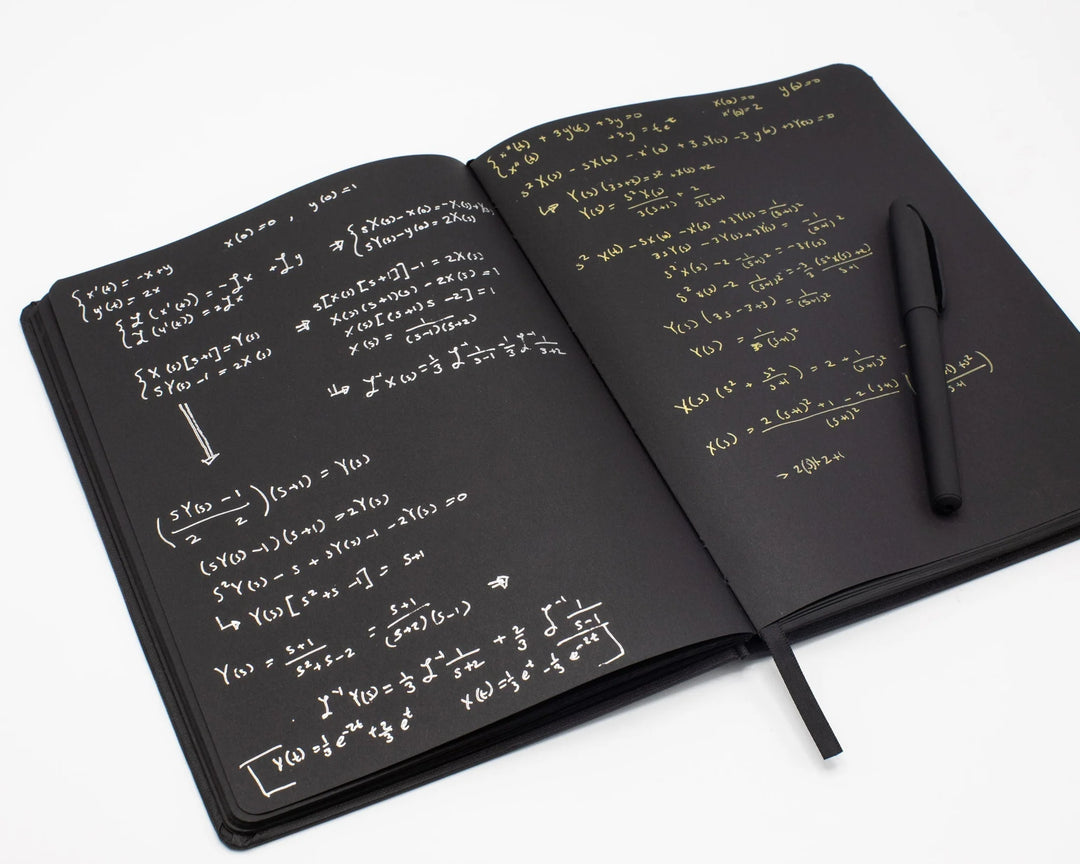 x(0)=0 , y(0)=1
{ x'(t) = -x+y
y'(t) = 2x
{ ℒ(x'(t)) = -ℒx + ℒy
ℒ(y'(t)) = 2ℒx
⇒ { sX(s)-x(0)=-X(s)+Y(s)
sY(s)-y(0)=2X(s)
{ X(s)[s+1]=Y(s)
sY(s)-1=2X(s)
⇒ s[X(s)[s+1]]-1=2X(s)
X(s)(s+1)(s)-2X(s)=1
X(s)[(s+1)s-2]=1
X(s)=1/(s-1)(s+2)
ℒ⁻¹X(s)=1/3 ℒ⁻¹ 1/s-1 - 1/3 ℒ⁻¹ 1/s+2
(sY(s)-1/2)(s+1)=Y(s)
(sY(s)-1)(s+1)=2Y(s)
s²Y(s)-s+sY(s)-1-2Y(s)=0
↳ Y(s)[s²+s-1]=s+1
Y(s)=s+1/s²+s-2 = s+1/(s+2)(s-1) ⇒
ℒ⁻¹Y(s)=1/3 ℒ⁻¹ 1/s+2 + 2/3 ℒ⁻¹ 1/s-1
Y(t)=1/3 e^-2t + 2/3 e^t
X(t)=1/3 e^t - 1/3 e^-2t
x(0)=0 y(0)=0
x'(0)=2
{ x"(t) + 3y'(t) + 3y=0
x"(t) +3y = te^t
s²X(s) - sX(0) - x'(0) + 3sY(s) - 3y(0) + 3Y(s) = 0
↳ Y(s)(3s+3)=s² + X(s)+2
Y(s)= s²X(s)/3(s+1) + 2/3(s+1
s²X(s) - sX(0) - x'(0) + 3Y(s) = 1/(s+1)²
3sY(s) - 3Y(s)+3Y(s) = -1/(s+1)²
s²X(s) - 2 - 1/(s+1)² = -3Y(s)
s²X(s) - 2 - 1/(s+1)² = -3/3 (s²X(s)+2)/s+1
Y(s)(3s-3+3) = 1/(s+1)²
Y(s) = 1/3s(s+1)²
X(s)(s² + s²/s+1) = 2 + 1/(s+1)²
X(s) = 2(s+1)²+1-2(s+1)/(s+1)²
> 2(s)+2+1